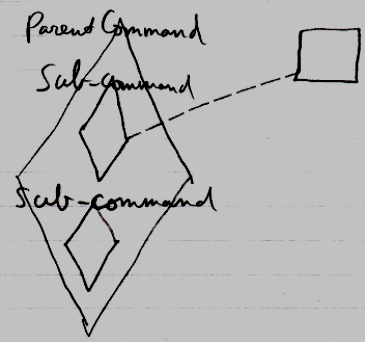 Parent Command
Sub-command
Sub-command